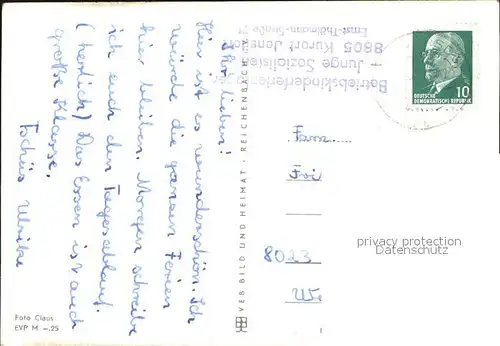 Ihr Lieben!
Hier ist es wunderschön. Ich
würde die ganzen Ferien
hier bleiben. Morgen schreibe
ich euch den Tagesablauf.
(herrlich) Das Essen ist auch
große Klasse.
Tschüs Ulrike
Foto Claus
EVP M -.25
VEB BILD UND HEIMAT · REICHENBACH
Betriebskinderferien
— Junge Sozialisten
8805 Kurort Jons
Ernst-Thälmann-Straße
10
DEUTSCHE
DEMOKRATISCHE REPUBLIK
Fam
8023
privacy protection
Datenschutz